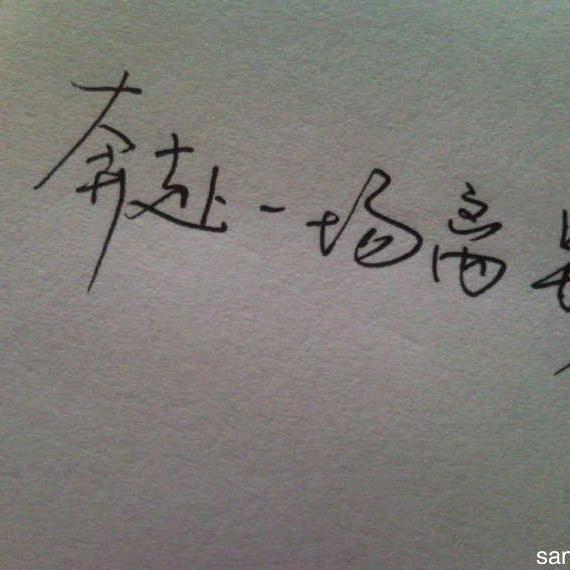 奔赴一场离
sar